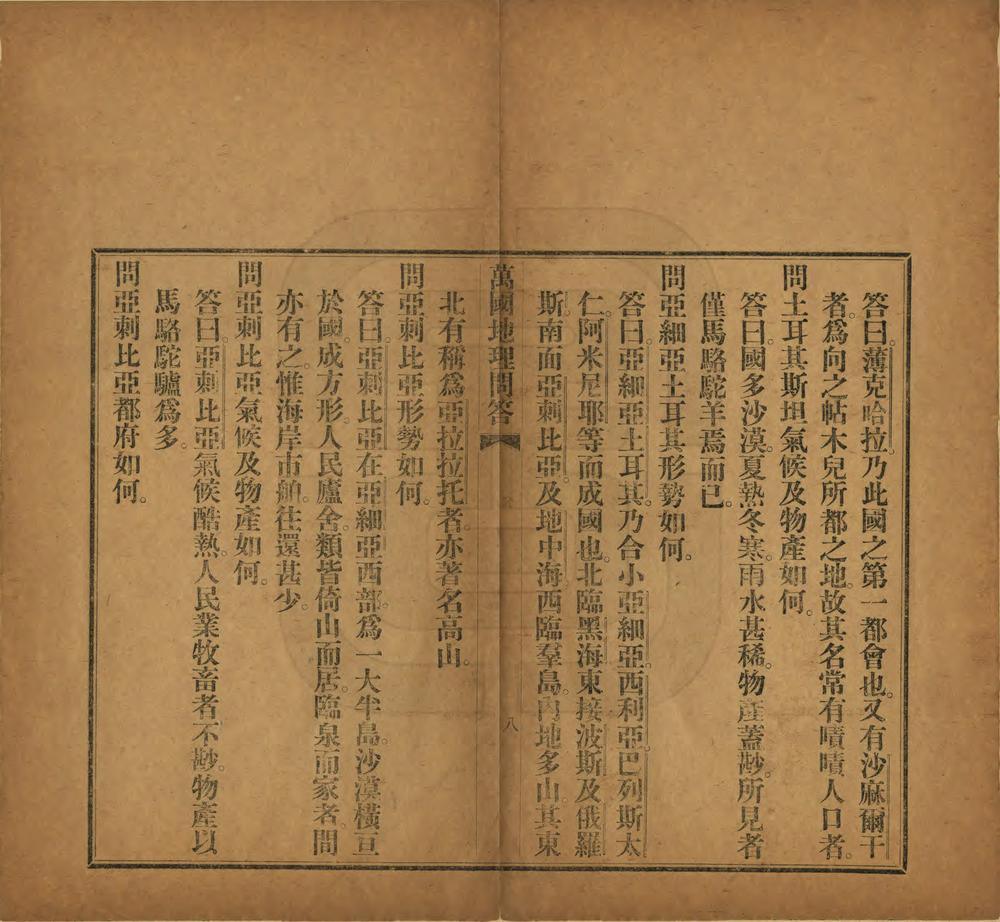 答曰薄克哈拉乃此國之第一都會也。又有沙麻爾干
者。爲向之帖木兒所都之地。故其名常有嘖嘖人口者。
問土耳其斯坦氣候及物產如何。
答曰。國多沙漠。夏熱冬寒。雨水甚稀。物產蓋尠。所見者
僅馬駱駝羊焉而已。
問亞細亞土耳其形勢如何。
答曰。亞細亞土耳其。乃合小亞細亞。西利亞。巴列斯太
仁。阿米尼耶等而成國也。北臨黑海。東接波斯及俄羅
斯。南面亞剌比亞。及地中海。西臨羣島。內地多山。其東
萬國地理問答
八
北有稱爲亞拉拉托者。亦著名高山。
問亞剌比亞形勢如何。
答曰。亞剌比亞在亞細亞西部。爲一大半島。沙漠橫亘
於國。成方形。人民廬舍。類皆倚山而居。臨泉而家者。間
亦有之。惟海岸市舶。往還甚少。
問亞剌比亞氣候及物產如何。
答曰。亞剌比亞氣候酷熱。人民業牧畜者不尠。物產以
馬駱駝驢爲多。
問亞剌比亞都府如何。